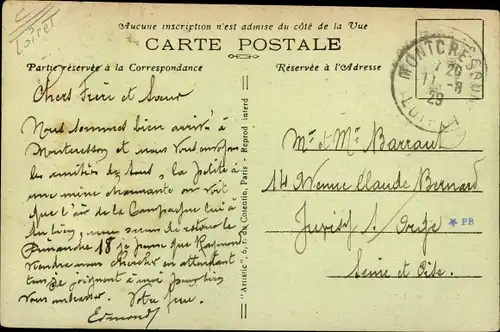 Loiret
Aucune inscription n'est admise du côté de la Vue
CARTE POSTALE
Partie réservée à la Correspondance
Réservée à l'Adresse
MONTCRESSON
7 20
11 - 8
29
LOIRET
Chers Frère et Sœur
Nous sommes bien arrivés à
Montcresson et nous vous envoyons
les amitiés de tous, la petite a
une mine charmante on voit
que l'air de la Campagne lui a
fait du bien, nous serons de retour le
Dimanche 18 je pense que Raymond
viendra nous chercher en attendant
tous se joignent à moi pour bien
vous embrasser. Votre frère.
Edmond
"Artistic", 6, r. du Cotentin, Paris - Reprod interd
Mr et Mme Barraud
14 Avenue Claude Bernard
Juvisy s/ Orge
Seine et Oise.
* PB